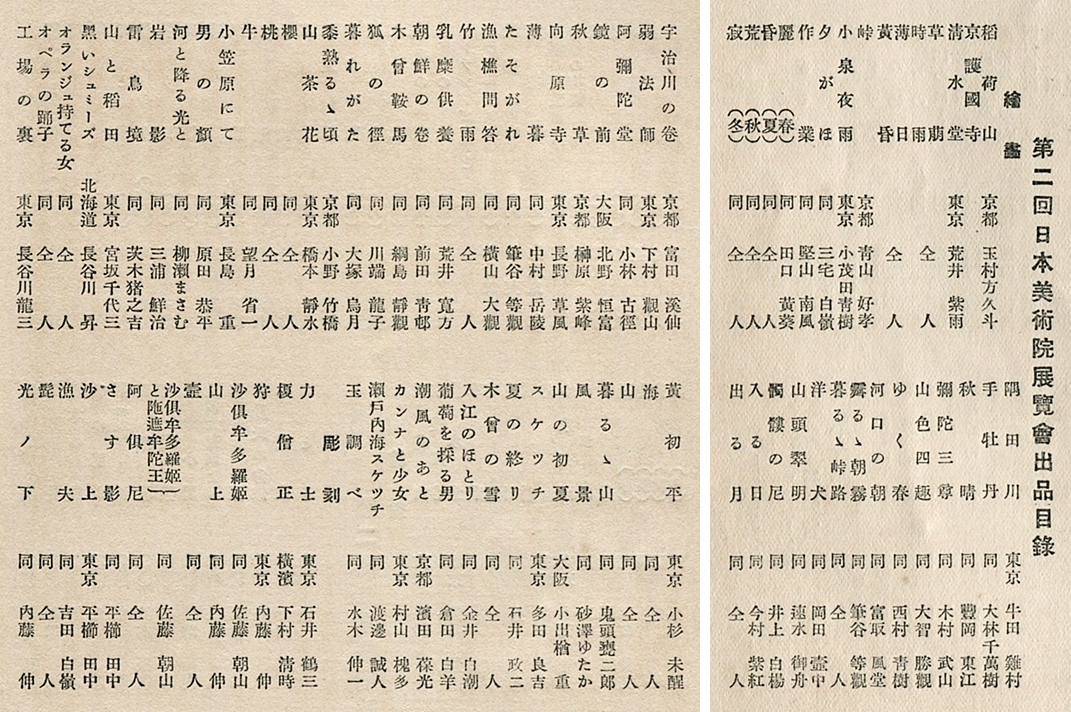 第二回日本美術院展覽會出品目錄
繪畫
稻荷山 京都 玉村方久斗
京護國寺
清水堂 東京 荒井紫雨
草萠
時雨 仝人
薄日
黃昏 仝人
峠 京都 青山好孝
小泉夜雨 東京 小茂田青樹
夕がほ 同 三宅白嶺
作業 同 堅山南風
麗(春) 同 田口黃葵
昏(夏) 同 仝人
荒(秋) 同 仝人
寂(冬) 同 仝人
隅田川 東京 牛田雞村
手牡丹 同 大林千萬樹
秋晴 同 豐岡東江
彌陀三尊 同 木村武山
山色四趣 同 大智勝觀
ゆく春 同 西村青樹
河口の朝 同 富取風堂
霽るゝ朝霧 同 筆谷等觀
暮るゝ峠路 同 仝人
洋犬 同 岡田壺中
山頭翠明 同 速水御舟
髑髏の尼 同 井上白楊
入る日 同 今村紫紅
出る月 同 仝人
宇治川の卷 京都 富田溪仙
弱法師 東京 下村觀山
阿彌陀堂 同 小林古徑
鏡の前 大阪 北野恒富
秋草 京都 榊原紫峰
向原寺 東京 長野草風
薄暮 同 中村岳陵
たそがれ 同 筆谷等觀
漁樵問答 同 橫山大觀
竹雨 同 仝人
乳糜供養 同 荒井寬方
朝鮮の卷 同 前田青邨
木曾鞍馬 同 綱島靜觀
狐の徑 同 川端龍子
暮れがた 同 大塚鳥月
黍熟るゝ頃 京都 小野竹橋
山茶花 東京 橋本靜水
櫻 同 仝人
桃 同 仝人
牛 同 望月省一
小笠原にて 東京 長島重
男の顏 同 原田恭平
河と降る光と 同 柳瀨まさむ
岩影 同 三浦鮮治
雷鳥境 同 茨木猪之吉
山と稻田 東京 宮坂千代三
黑いシュミーズ 北海道 長谷川昇
オランジュ持てる女 同 仝人
オペラの踊子 同 仝人
工場の裏 東京 長谷川龍三
黃初平 東京 小杉未醒
海 同 仝人
山 同 仝人
暮るゝ山 同 鬼頭甕二郎
風景 同 砂澤ゆたか
山の初夏 大阪 小出楢重
スケッチ 東京 多田良吉
夏の終り 同 石井政二
木曾の雪 同 仝人
入江のほとり 同 金井白潮
葡萄を採る男 同 倉田白羊
潮風のあと 京都 濱田葆光
カンナと少女 東京 村山槐多
瀨戶內海スケッチ 同 渡邊誠人
玉調べ 同 水木伸一
彫刻
力士 東京 石井鶴三
榎僧正 橫濱 下村清時
狩 東京 內藤伸
沙俱牟多羅姬 同 佐藤朝山
山上 同 內藤伸
壷 同 仝人
沙俱牟多羅姬と陁遮牟陀王 同 佐藤朝山
阿俱尼 同 仝人
さす影 同 平櫛田中
沙上 東京 平櫛田中
漁夫 同 吉田白嶺
髭 同 仝人
光ノ下 同 內藤伸